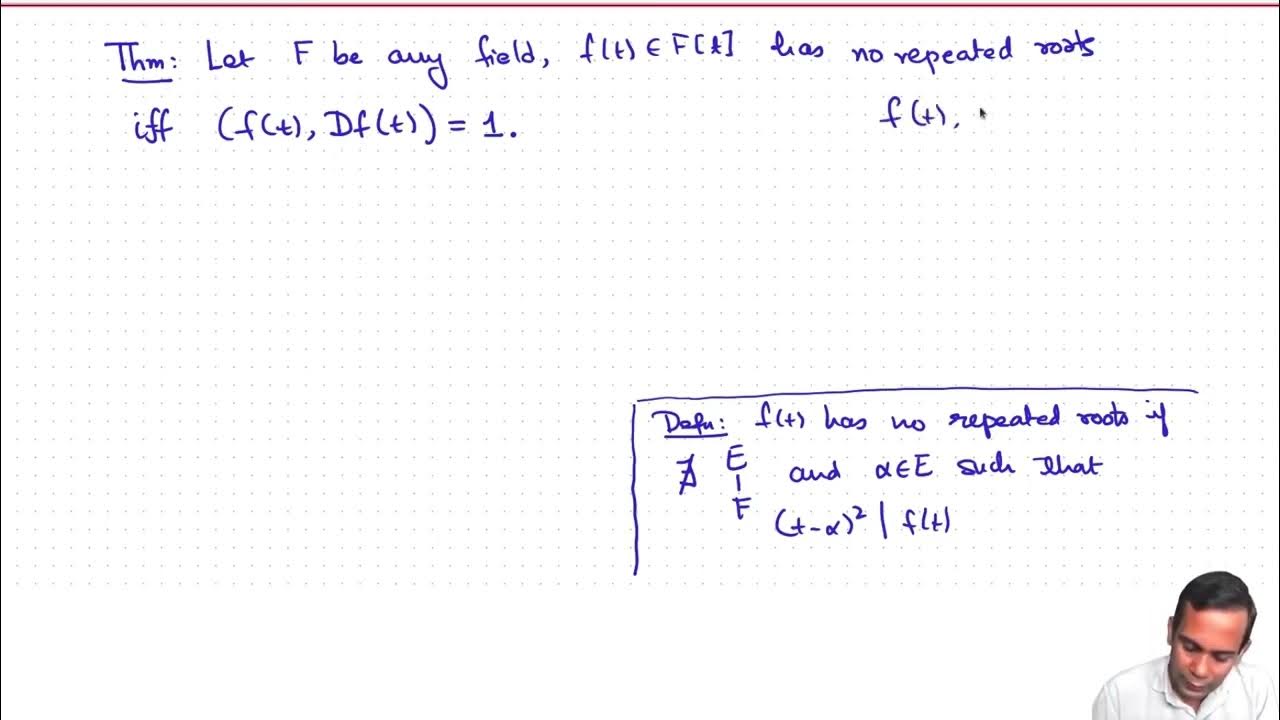 Thm: Let F be any field, f(t) ∈ F[t] has no repeated roots
iff (f(t), Df(t)) = 1.
f(t),
Defn: f(t) has no repeated roots if
∄ E | F and α∈E such that
(t-α)² | f(t)